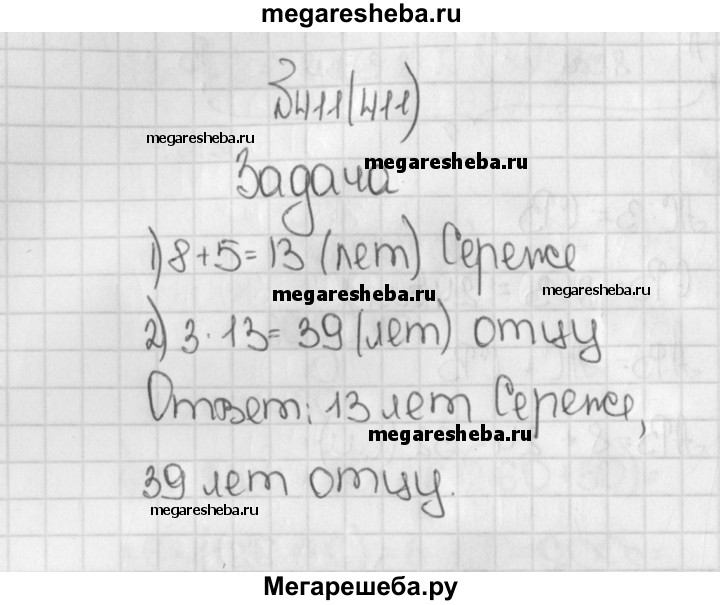 megaresheba.ru
№411(411)
megaresheba.ru
Задача
megaresheba.ru
1) 8+5=13 (лет) Сереже
megaresheba.ru
megaresheba.ru
2) 3·13=39 (лет) отцу
Ответ: 13 лет Сереже,
megaresheba.ru
39 лет отцу.
megaresheba.ru
Мегарешеба.ру